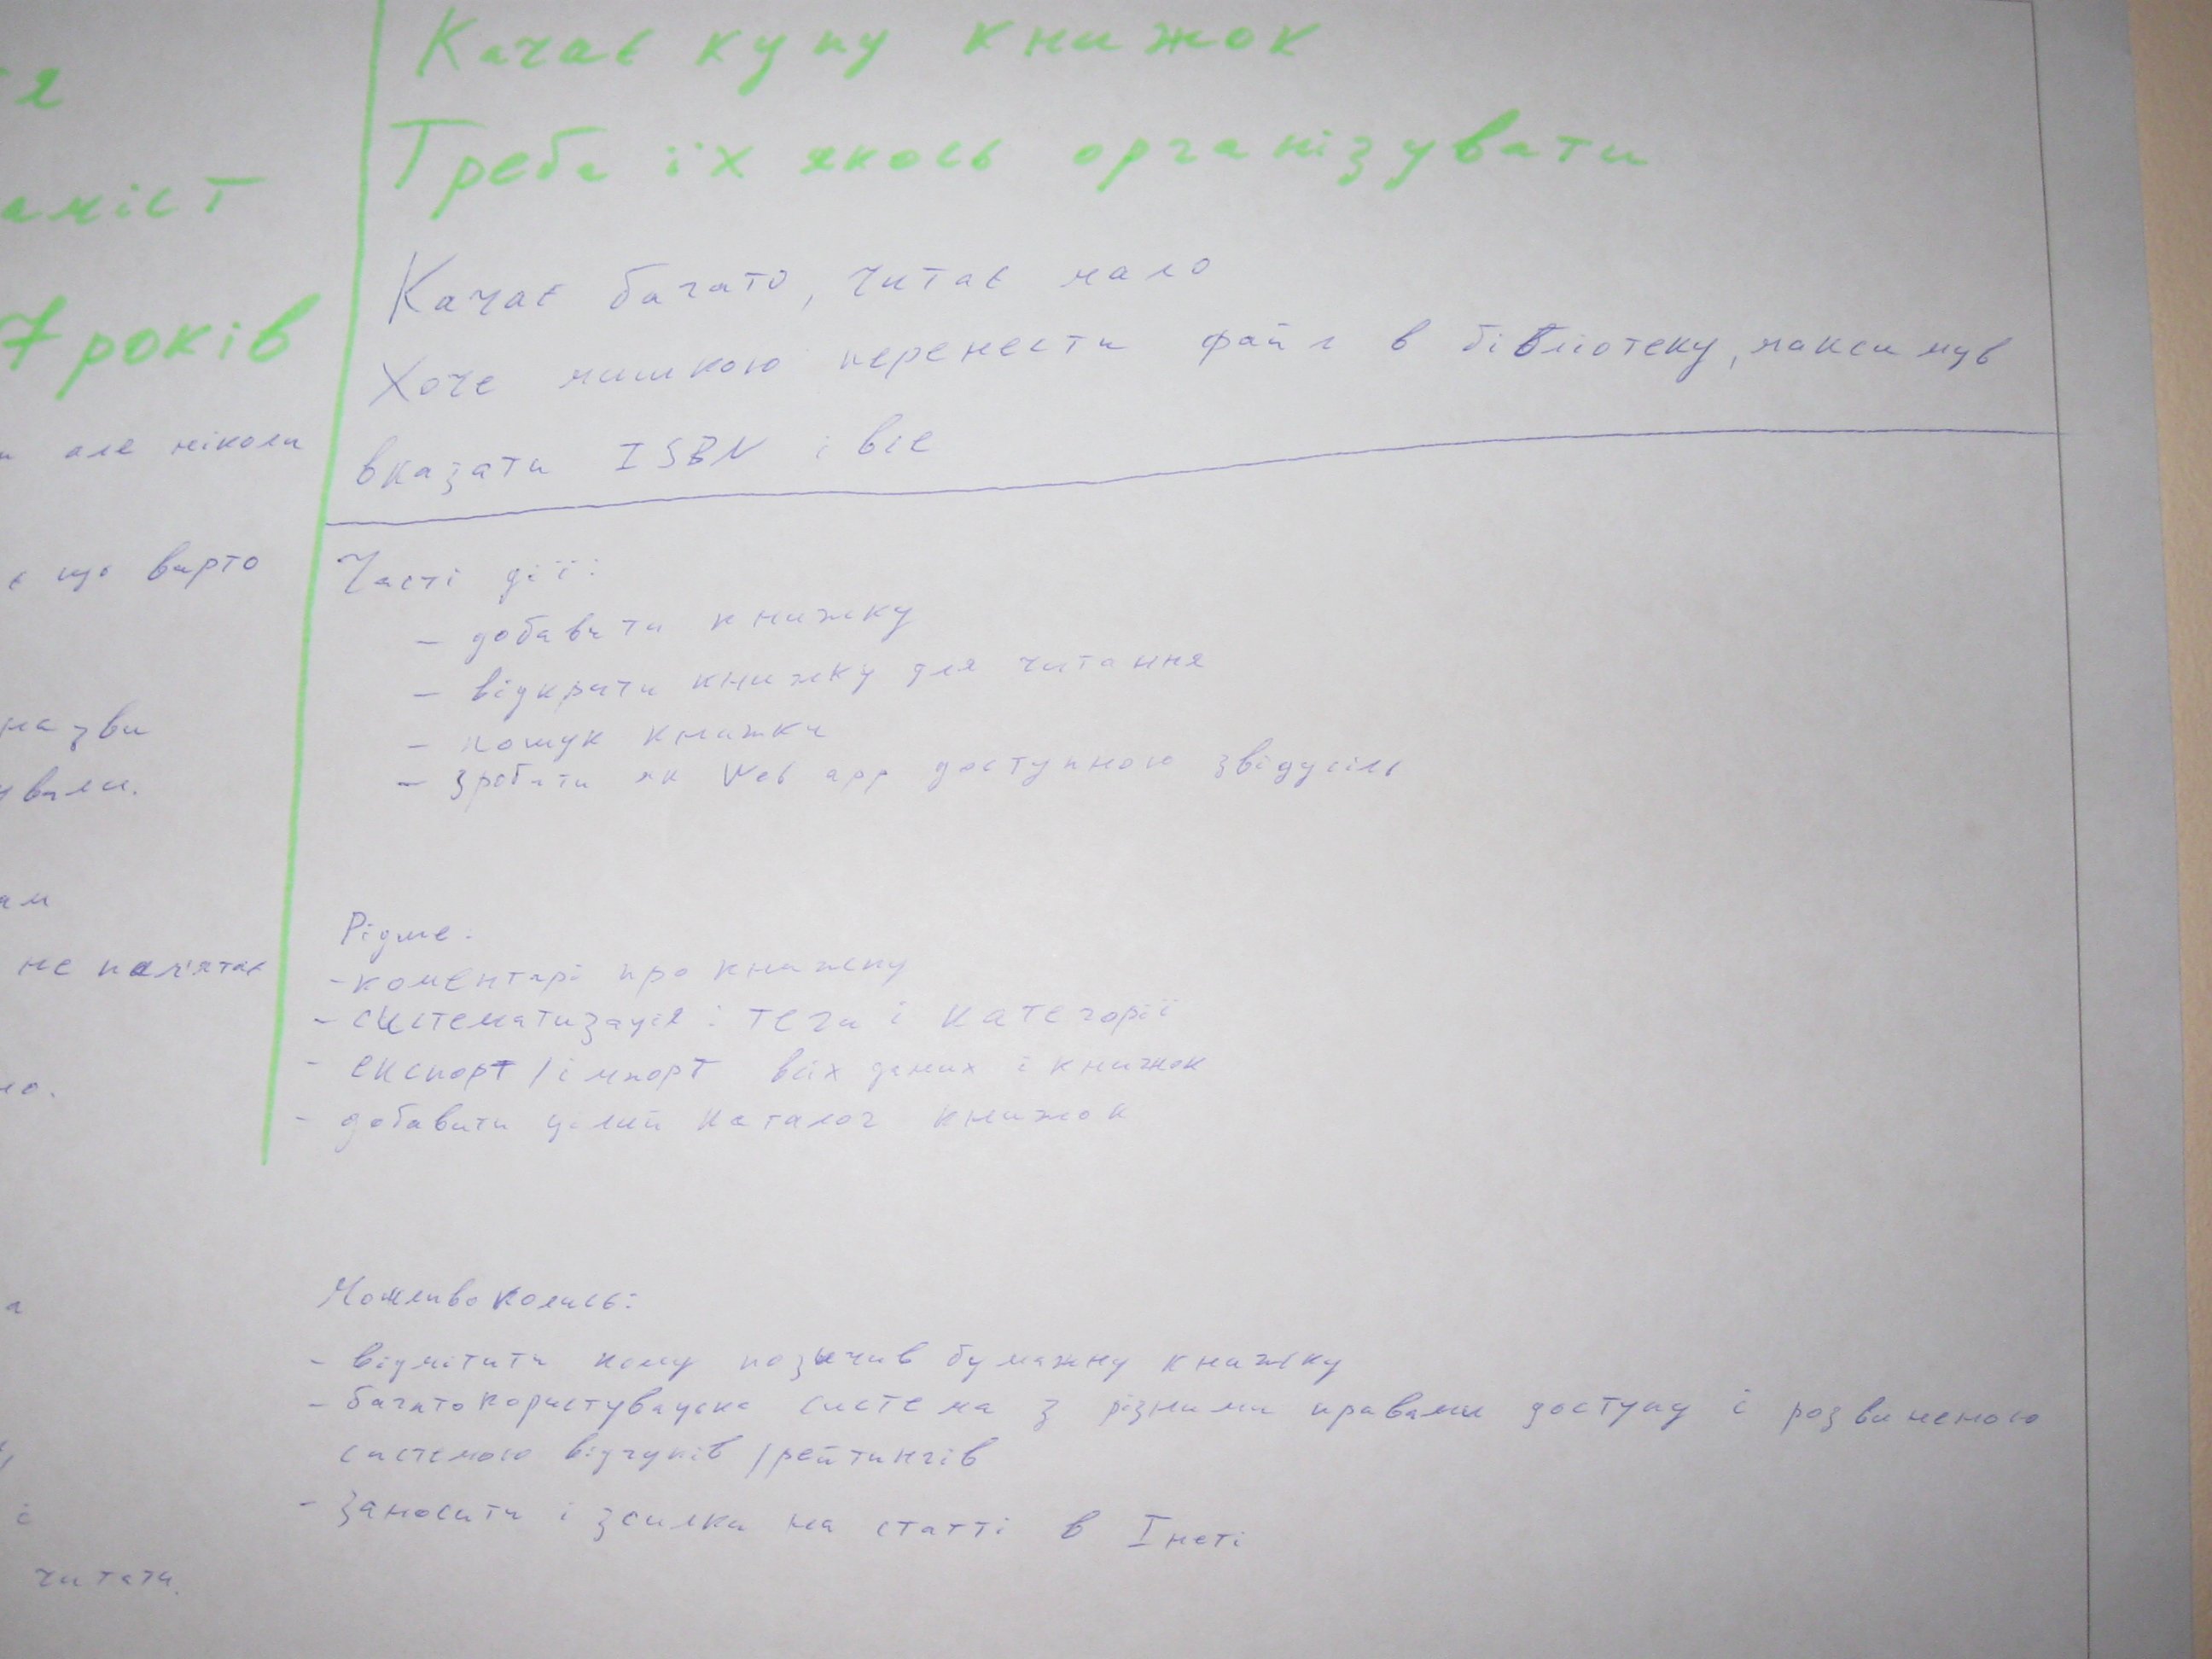 я
аміст
7 років
але ніколи
є що варто
назви
ували.
ам
не пам'ятає
но.
а
і
читати.
Качає купу книжок
Треба їх якось організувати
Качає багато, читає мало
Хоче мишкою перенести файл в бібліотеку, максимув
вказати ISBN і все
Часті дії:
- добавити книжку
- відкрити книжку для читання
- пошук книжки
- зробити як Web app доступною звідусіль
Рідше:
- коментарі про книжку
- систематизація: теги і категорії
- експорт/імпорт всіх даних і книжок
- добавити цілий каталог книжок
Можливо колись:
- відмітити кому позичив бумажну книжку
- багатокористувацька система з різними правами доступу і розвиненою
системою відгуків/рейтингів
- заносити і зсилки на статті в Інеті